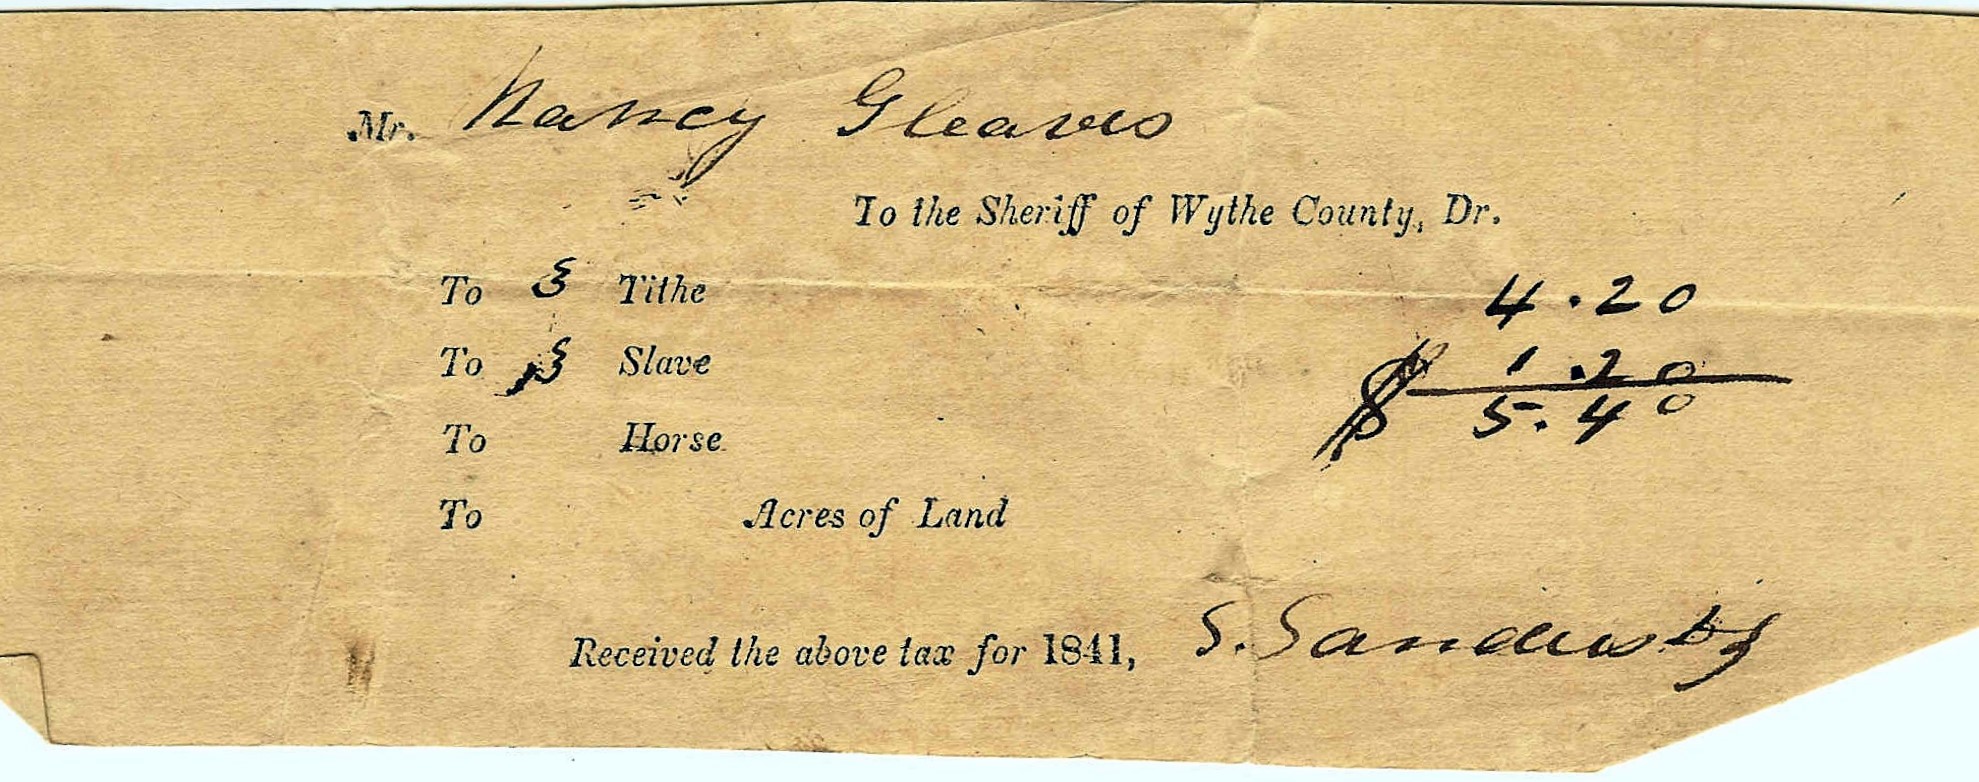 Mr. Nancy Gleaves
To the Sheriff of Wythe County, Dr.
To 3 Tithe 4.20
To 3 Slave 1.20
$ 5.40
To Horse
To Acres of Land
Received the above tax for 1841, S. Sanders